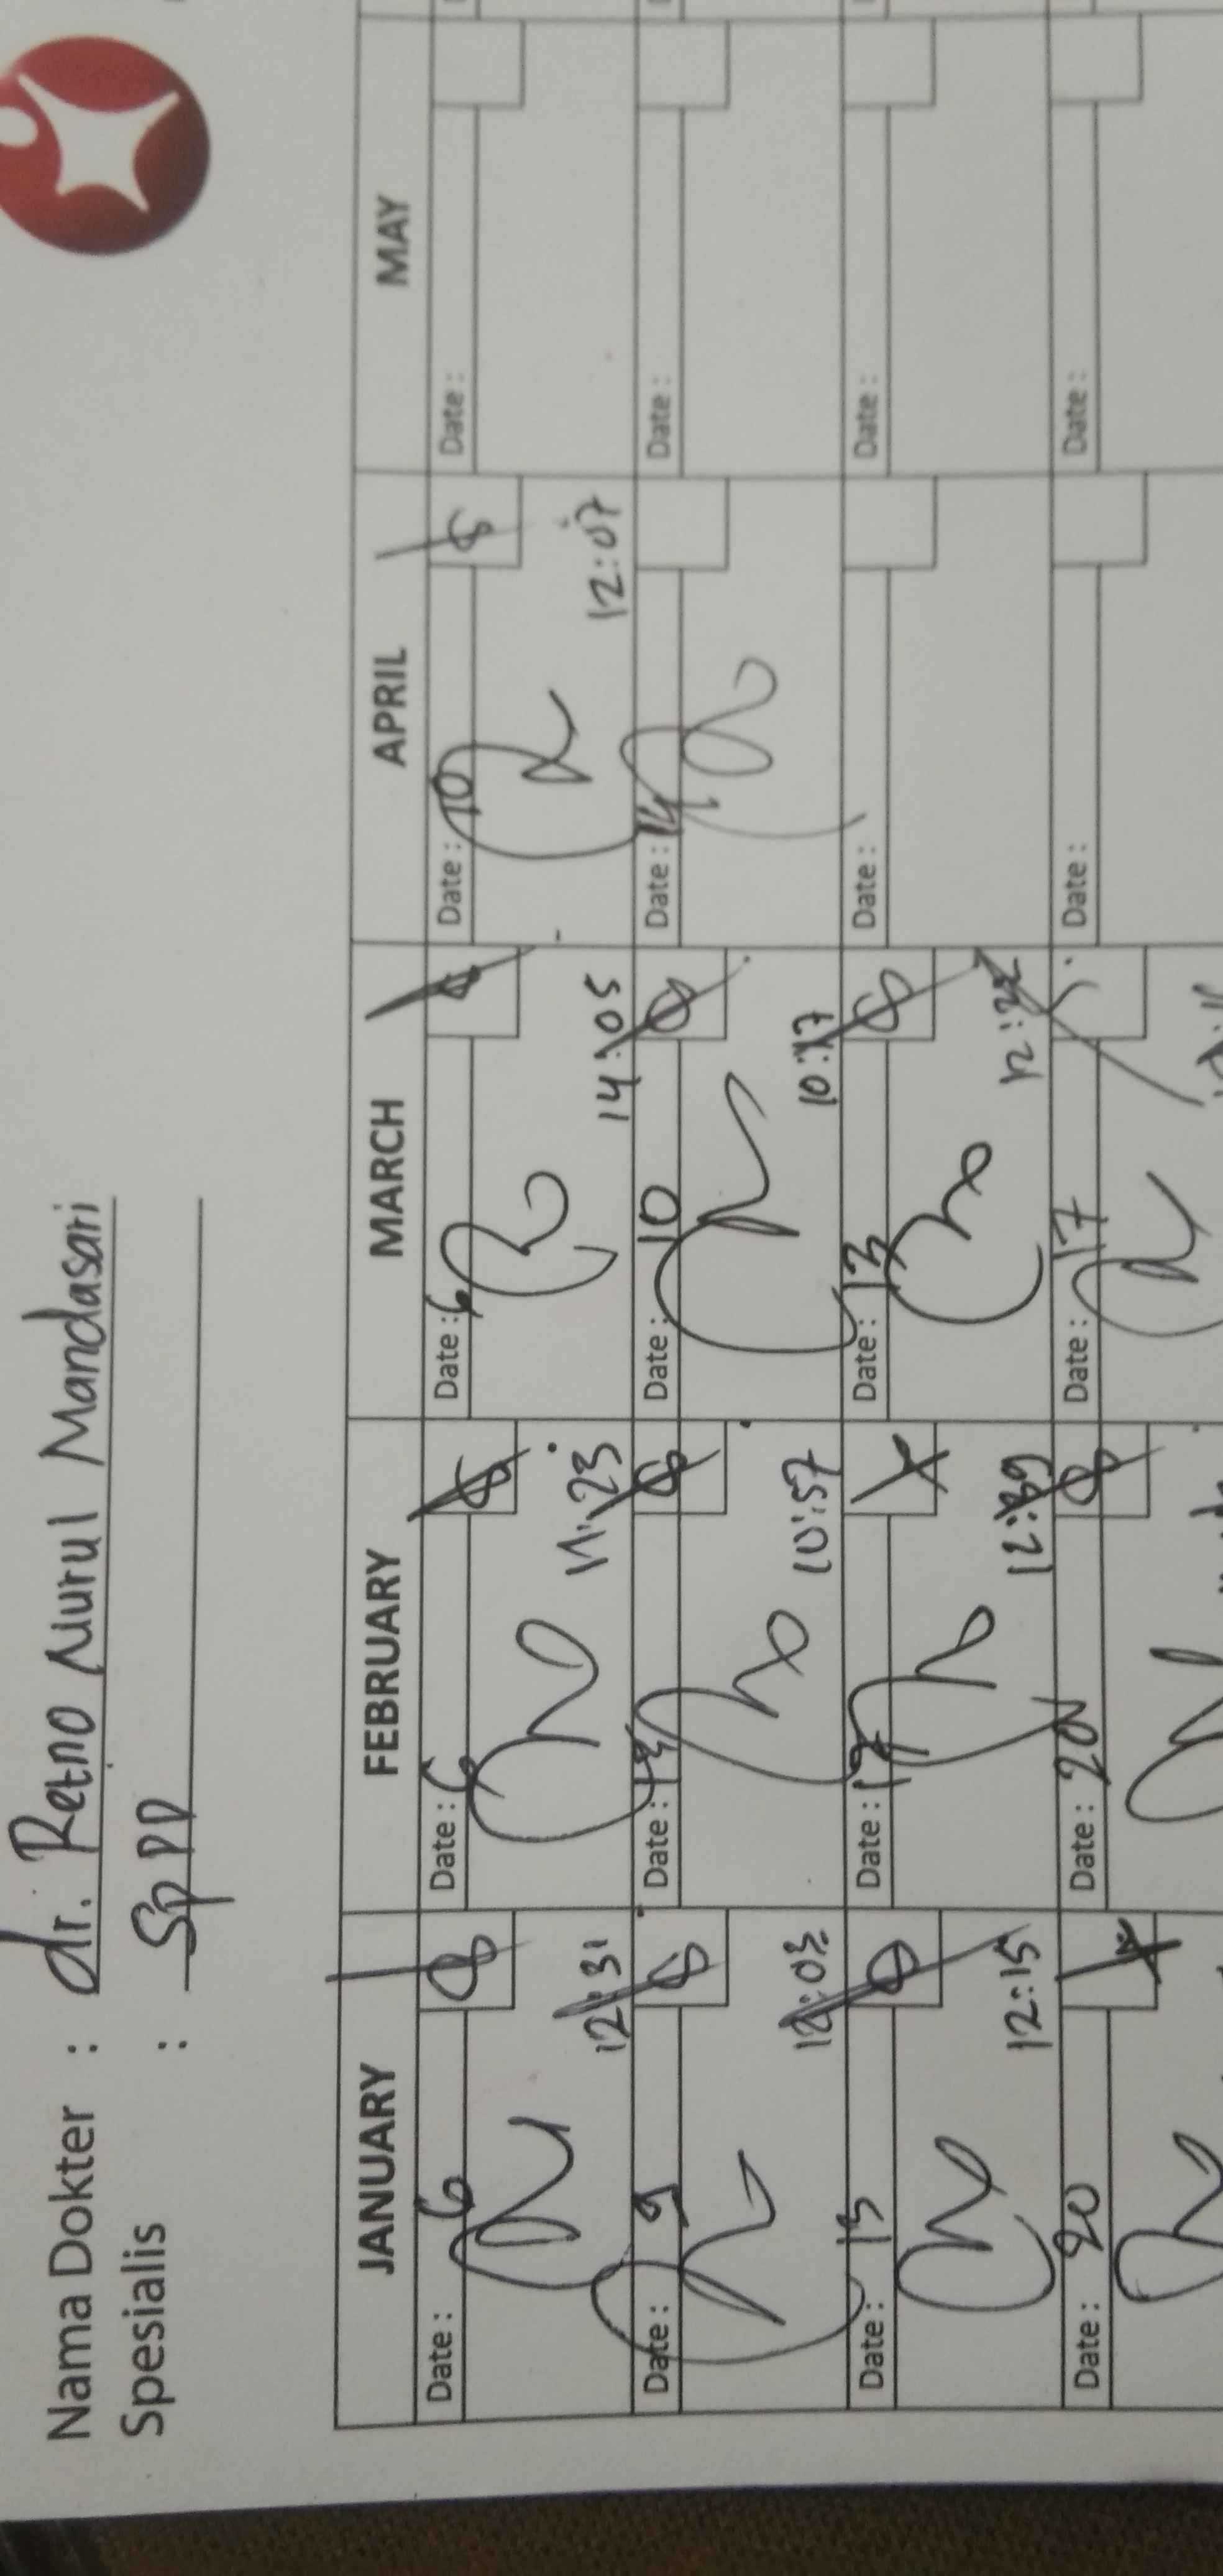 Nama Dokter : dr. Retno Nurul Mandasari
Spesialis : Sp PD
JANUARY FEBRUARY MARCH APRIL MAY
Date : 6 Date : 6 Date : 6 Date : 10 Date :
12:31 11:23 14:05 12:07
Date : 9 Date : 13 Date : 10 Date : 14 Date :
12:03 10:57 10:17
Date : 13 Date : Date : 13 Date : Date :
12:15 12:39
Date : 20 Date : 20 Date : 17 Date : Date :